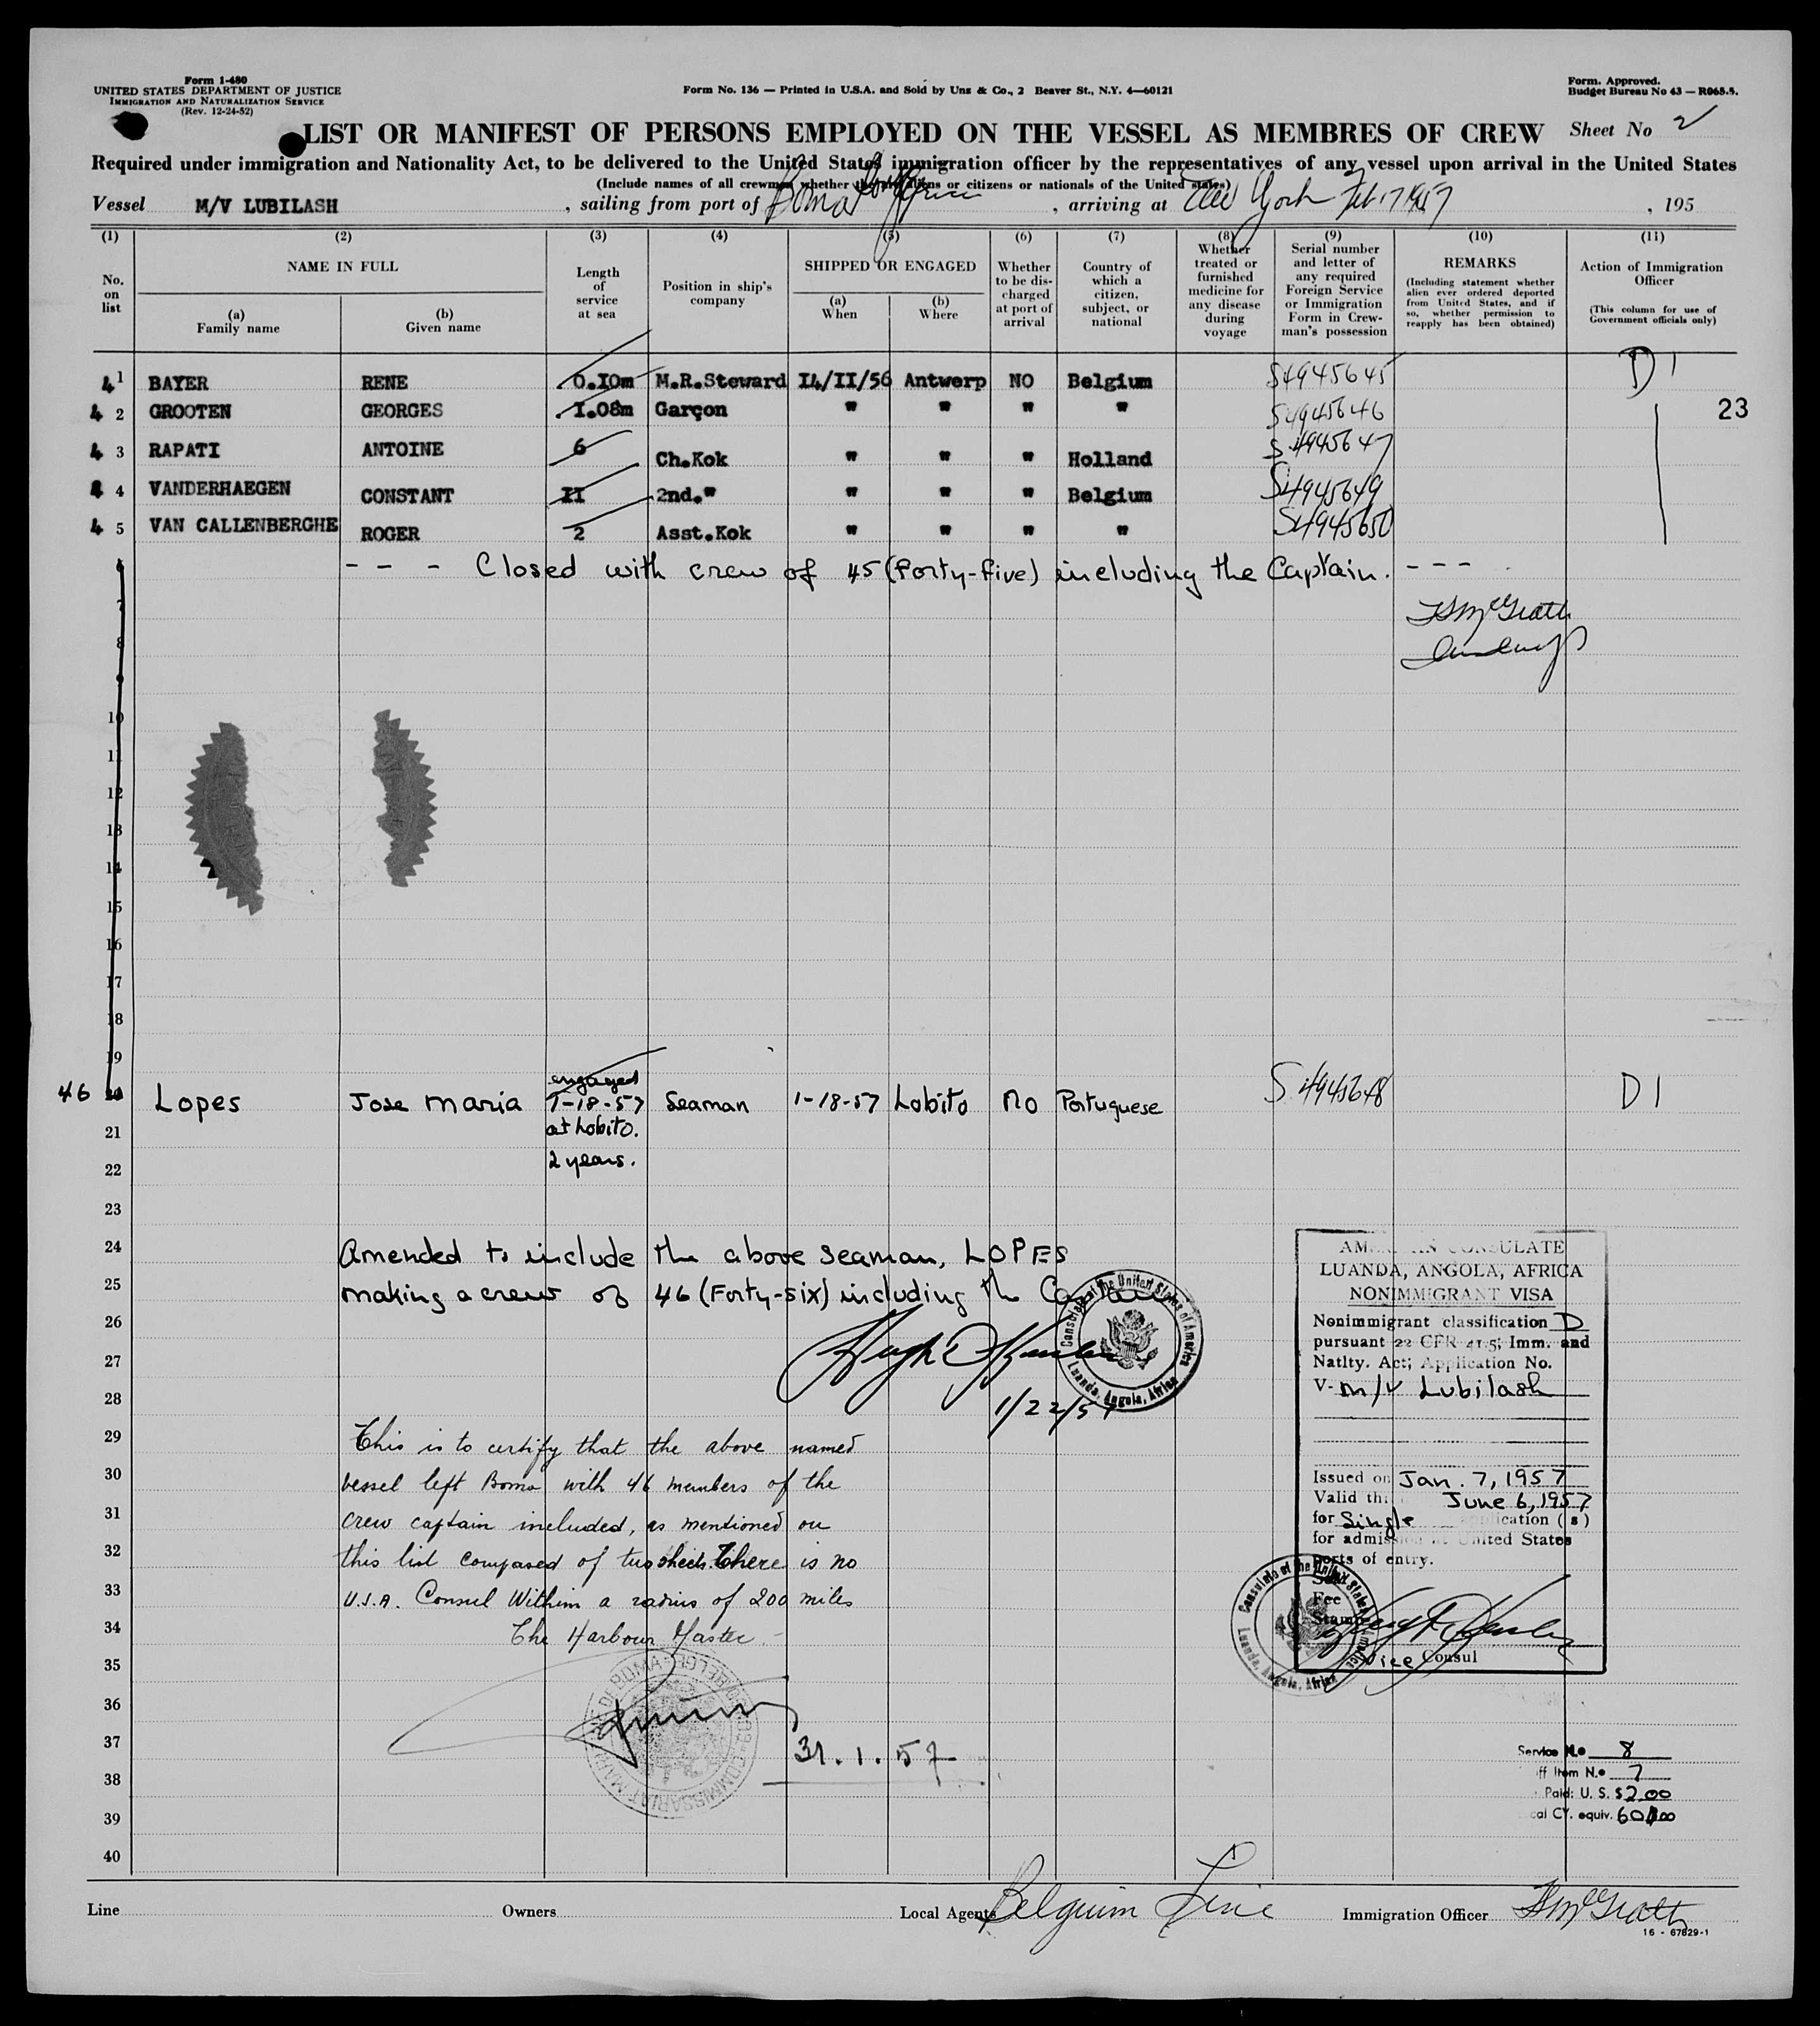 Form 1-480
UNITED STATES DEPARTMENT OF JUSTICE
IMMIGRATION AND NATURALIZATION SERVICE
(Rev. 12-24-52)
Form No. 136 — Printed in U.S.A. and Sold by Unz & Co., 2 Beaver St., N.Y. 4—60121
Form. Approved.
Budget Bureau No 43 — R065.5.
LIST OR MANIFEST OF PERSONS EMPLOYED ON THE VESSEL AS MEMBRES OF CREW Sheet No 2
Required under immigration and Nationality Act, to be delivered to the United States immigration officer by the representatives of any vessel upon arrival in the United States
(Include names of all crewmen whether they are aliens or citizens or nationals of the United states)
Vessel M/V LUBILASH , sailing from port of Boma , arriving at New York Feb 17 1957 , 195
(1) (2) (3) (4) (5) (6) (7) (8) (9) (10) (11)
No. on list
NAME IN FULL
(a) Family name
(b) Given name
Length of service at sea
Position in ship's company
SHIPPED OR ENGAGED
(a) When
(b) Where
Whether to be discharged at port of arrival
Country of which a citizen, subject, or national
Whether treated or furnished medicine for any disease during voyage
Serial number and letter of any required Foreign Service or Immigration Form in Crewman's possession
REMARKS
(Including statement whether alien ever ordered deported from United States, and if so, whether permission to reapply has been obtained)
Action of Immigration Officer
(This column for use of Government officials only)
4 1 BAYER RENE 0.10m M.R.Steward I4/II/56 Antwerp NO Belgium S4945645 D1
4 2 GROOTEN GEORGES 1.08m Garçon " " " " S4945646 23
4 3 RAPATI ANTOINE 6 Ch.Kok " " " Holland S4945647
4 4 VANDERHAEGEN CONSTANT II 2nd." " " " Belgium S4945649
4 5 VAN CALLENBERGHE ROGER 2 Asst.Kok " " " " S4945650
6 - - - Closed with crew of 45 (forty-five) including the Captain. - - -
7
8
9
10
11
12
13
14
15
16
17
18
19
46 20 Lopes Jose Maria engaged 1-18-57 at Lobito. 2 years. Seaman 1-18-57 Lobito No Portuguese S4945648 D1
21
22
23
24 Amended to include the above seaman, LOPES
25 making a crew of 46 (Forty-six) including the Captain
26
27
28 1/22/57
Consulate of the United States of America
Luanda, Angola, Africa
29 This is to certify that the above named
30 vessel left Boma with 46 members of the
31 crew captain included, as mentioned on
32 this list composed of two sheets. There is no
33 U.S.A. Consul Within a radius of 200 miles
34 The Harbour Master
35
36
37 31.1.57
38
39
40
AMERICAN CONSULATE
LUANDA, ANGOLA, AFRICA
NONIMMIGRANT VISA
Nonimmigrant classification D
pursuant 22 CFR 41.5; Imm. and
Natlty. Act; Application No.
V- M/V Lubilash
Issued on Jan. 7, 1957
Valid thru June 6, 1957
for Single application (s)
for admission at United States
Ports of entry.
Seal
Fee
Stamp
Vice Consul
Consulate of the United States of America
Luanda, Angola, Africa
Service No 8
ff Item N.o 7
Paid: U. S. $2.00
cal CY. equiv.
Line Owners Local Agents Belguim Line Immigration Officer
16 - 67829-1